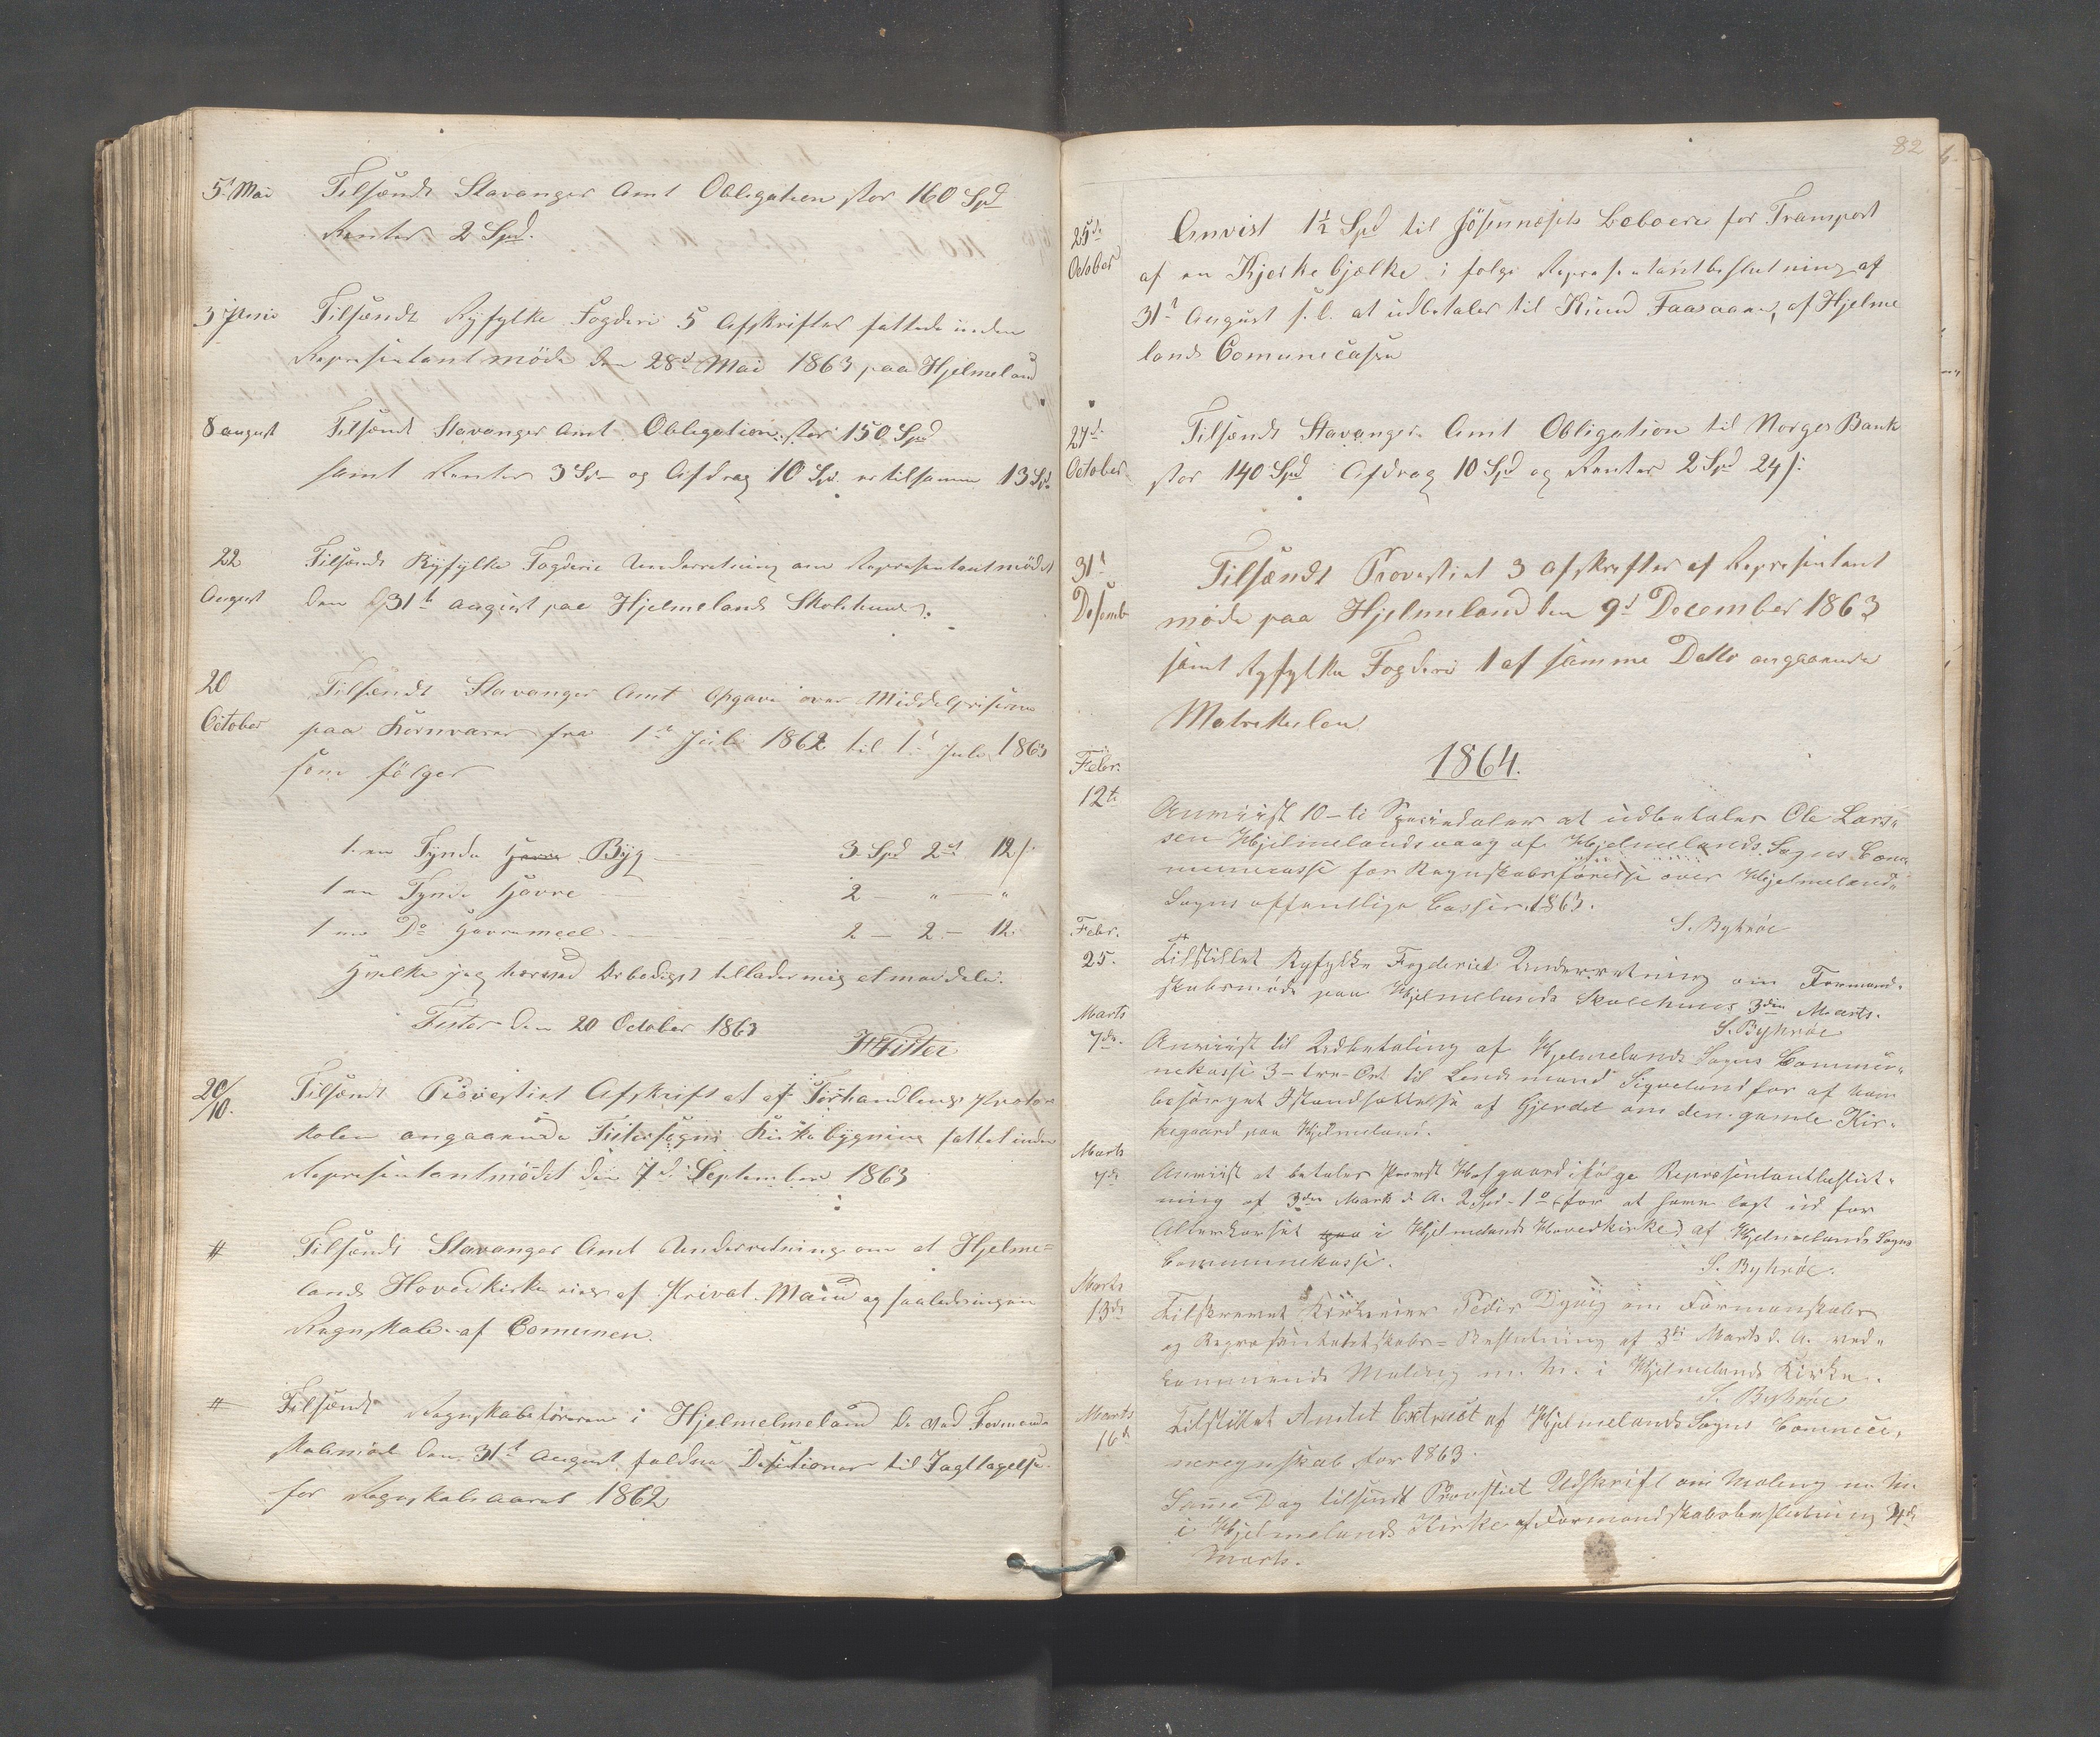 5t Mai Tilsændt Stavanger Amt Obligation stor 160 Spd
Renter 2 Spd.
3 Juni Tilsændt Ryfylke Fogderi 5 Afskrifter fattede under
Representantmöde den 28d Mai 1863 paa Hjelmeland
8 august Tilsændt Stavanger Amt Obligation stor 150 Spd
samt Renter 3 Sp- og Afdrag 10 Spd. er tilsamen 13 Spd.
22 August Tilsændt Ryfylke Fogderie Underretning om Representantmödet
den 31t august paa Hjelmelands Skolehuus.
20 October Tilsændt Stavanger Amt Opgave over Middelpriserne
paa Kornvarer fra 1st Juli 1862 til 1t Juli 1863
som fölger
1 en Tynde Havre Byg 3 Spd 2 12 /:
1 en Tynde Havre 2 — " — "
1 en Do Havremeel 2 — 2 — 12
Hvilke jeg herved Ærbödigst tillader mig at meddele.
Fister den 20 October 1863
H Fister
20/10. Tilsændt Provestiet Afskrift et af Forhandlings Proto
kolen angaaende Fistersogns Kirkebygning fattet under
Representantmödet den 7d September 1863
# Tilsændt Stavanger Amt Underretning om at Hjelme=
lands Hovedkirke eies af Privat Mænd og saaledes ingen
Regnskab af Comunen.
# Tilsændt Regnskabsföreren i Hjelmelmeland De ved Formand
skabsmöde den 31t August faldne Desitioner til Iagttagelse
for Regnskabsaaret 1862
82
25de October Anvist 1½ Spd til Jösenнæsets Beboere for Transport
af en Kjerkebjelke i fölge Representantbeslutning af
31t August f. l. at udbetales til Knud Faasaaen, af Hjelme
lands Comunecasse
27de October Tilsændt Stavanger Amt Obligation til Norges Bank
stor 140 Spd Afdrag 10 Spd og Renter 2 Spd 24 /:
31t Desemb Tilsændt Provestiet 3 afskrefter af Representant
möde paa Hjelmeland den 9d December 1863
samt Ryfylke Fogderi 1 af samme Datto angaaende
Matrekulen
1864.
Febr. 12te Anviist 10-ti Speciedaler at udbetales Ole Lars"
sen Hjelmelandsvaag af Hjelmelands Sogns Com"
munecasse for Regnskabsförelse over Hjelmeland"
Sogns offentlige Casser 1863.
S. Byhröe
Febr. 25. Tilstillet Ryfylke Fogderiet Underretning om Formand"
skabsmöde paa Hjelmelands Skolehuus 3die Marts.
S. Byhröe
Marts 7de. Anviist til Udbetaling af Hjelmelands Sogns Commu"
nekasse 3-tre-Ort til Lensmand Sigveland for af ham
besörget Istandsættelse af Gjerdet om den gamle Kir"
kegaard paa Hjelmeland.
Marts 7de Anviist at betales Provst Hofgaard ifölge Representantbeslut"
ning af 3die Marts d. A. 2 Spd - 1 o (for at have lagt ud for
Alterkorset paa i Hjelmelands Hovedkirke) af Hjelmelands Sogns
Communekasse.
S. Byhröe.
Marts 13de Tilskrevet Kirkeeier Peder Dyvig om Formanskabs
og Representantskabs=Beslutning af 3die Marts d. A. ved"
kommende Maling m. M. i Hjelmelands Kirke.
S. Byhröe
Marts 16d Tilstillet Amtet Extract af Hjelmelands Sogns Commu"
neregnskab for 1863.
Same Dag tilsendt Provstiet Udskrift om Maling m. M.
i Hjelmelands Kirke af Formandskabsbeslutning 4de
Marts.